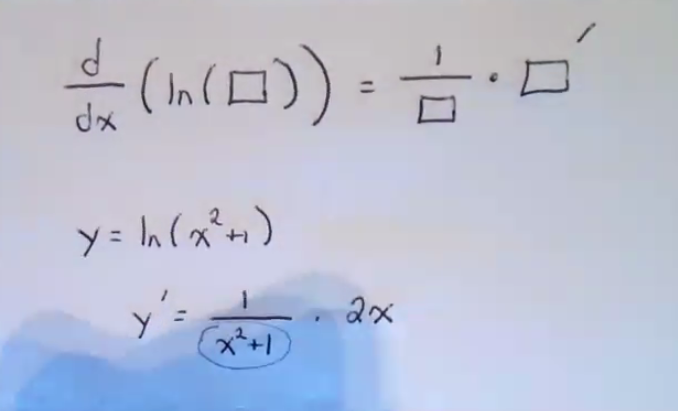 d/dx (ln(□)) = 1/□ · □′
y = ln(x²+1)
y′ = 1/(x²+1) · 2x